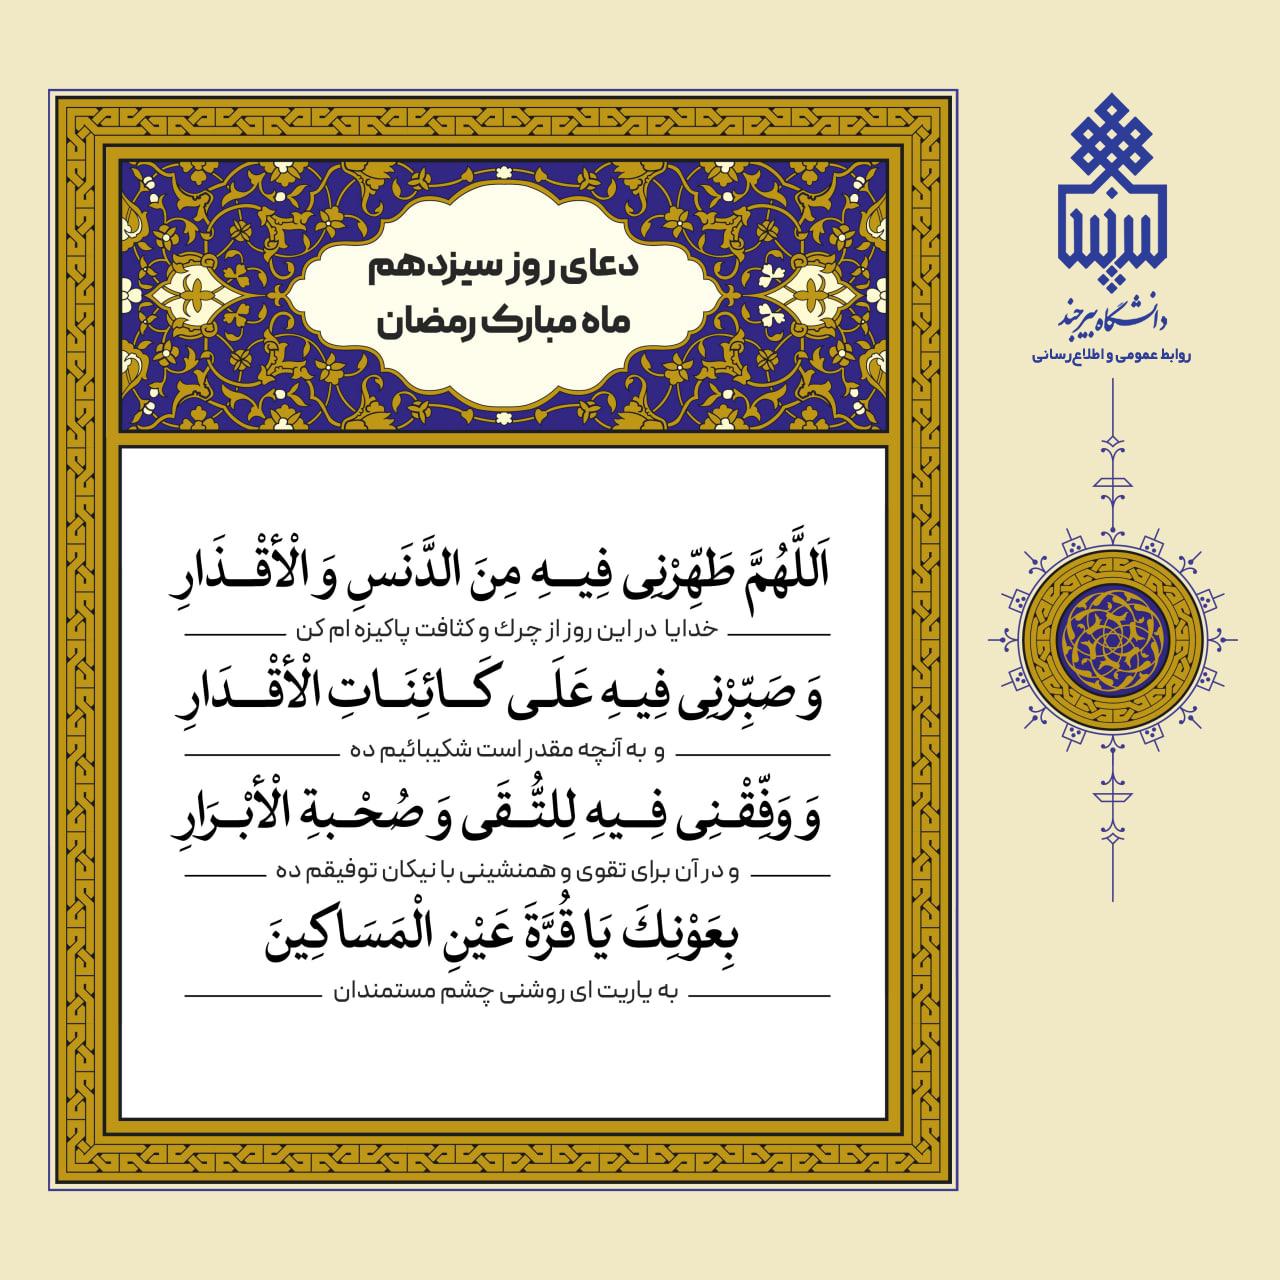 دعای روز سیزدهم
ماه مبارک رمضان
اَللَّهُمَّ طَهِّرْنِی فِیهِ مِنَ الدَّنَسِ وَ الْأَقْذَارِ
خدایا در این روز از چرك و كثافت پاكیزه ام كن
وَ صَبِّرْنِی فِیهِ عَلَى كَائِنَاتِ الْأَقْدَارِ
و به آنچه مقدر است شكیبائیم ده
وَ وَفِّقْنِی فِیهِ لِلتُّقَى وَ صُحْبةِ الْأَبْرَارِ
و در آن برای تقوی و همنشینی با نیكان توفیقم ده
بِعَوْنِكَ یَا قُرَّةَ عَیْنِ الْمَسَاكِینَ
به یاریت ای روشنی چشم مستمندان
بیرجند
دانشگاه بیرجند
روابط عمومی و اطلاع‌رسانی